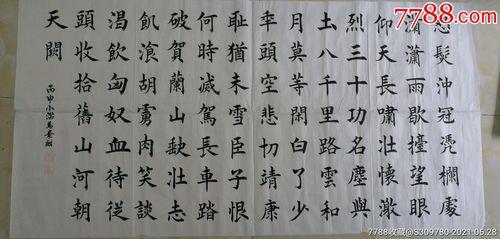 7788.com
怒髮沖冠凴欄處
瀟瀟雨歇擡望眼
仰天長嘯壯懷激
烈三十功名塵與
土八千里路雲和
月莫等閑白了少
秊頭空悲切靖康
耻猶未雪臣子恨
何時滅駕長車踏
破賀蘭山缺壯志
飢飡胡虜肉笑談
渴飲匈奴血待從
頭收拾舊山河朝
天闕
丙申小滿
7788收藏@S309780-2021.06.28